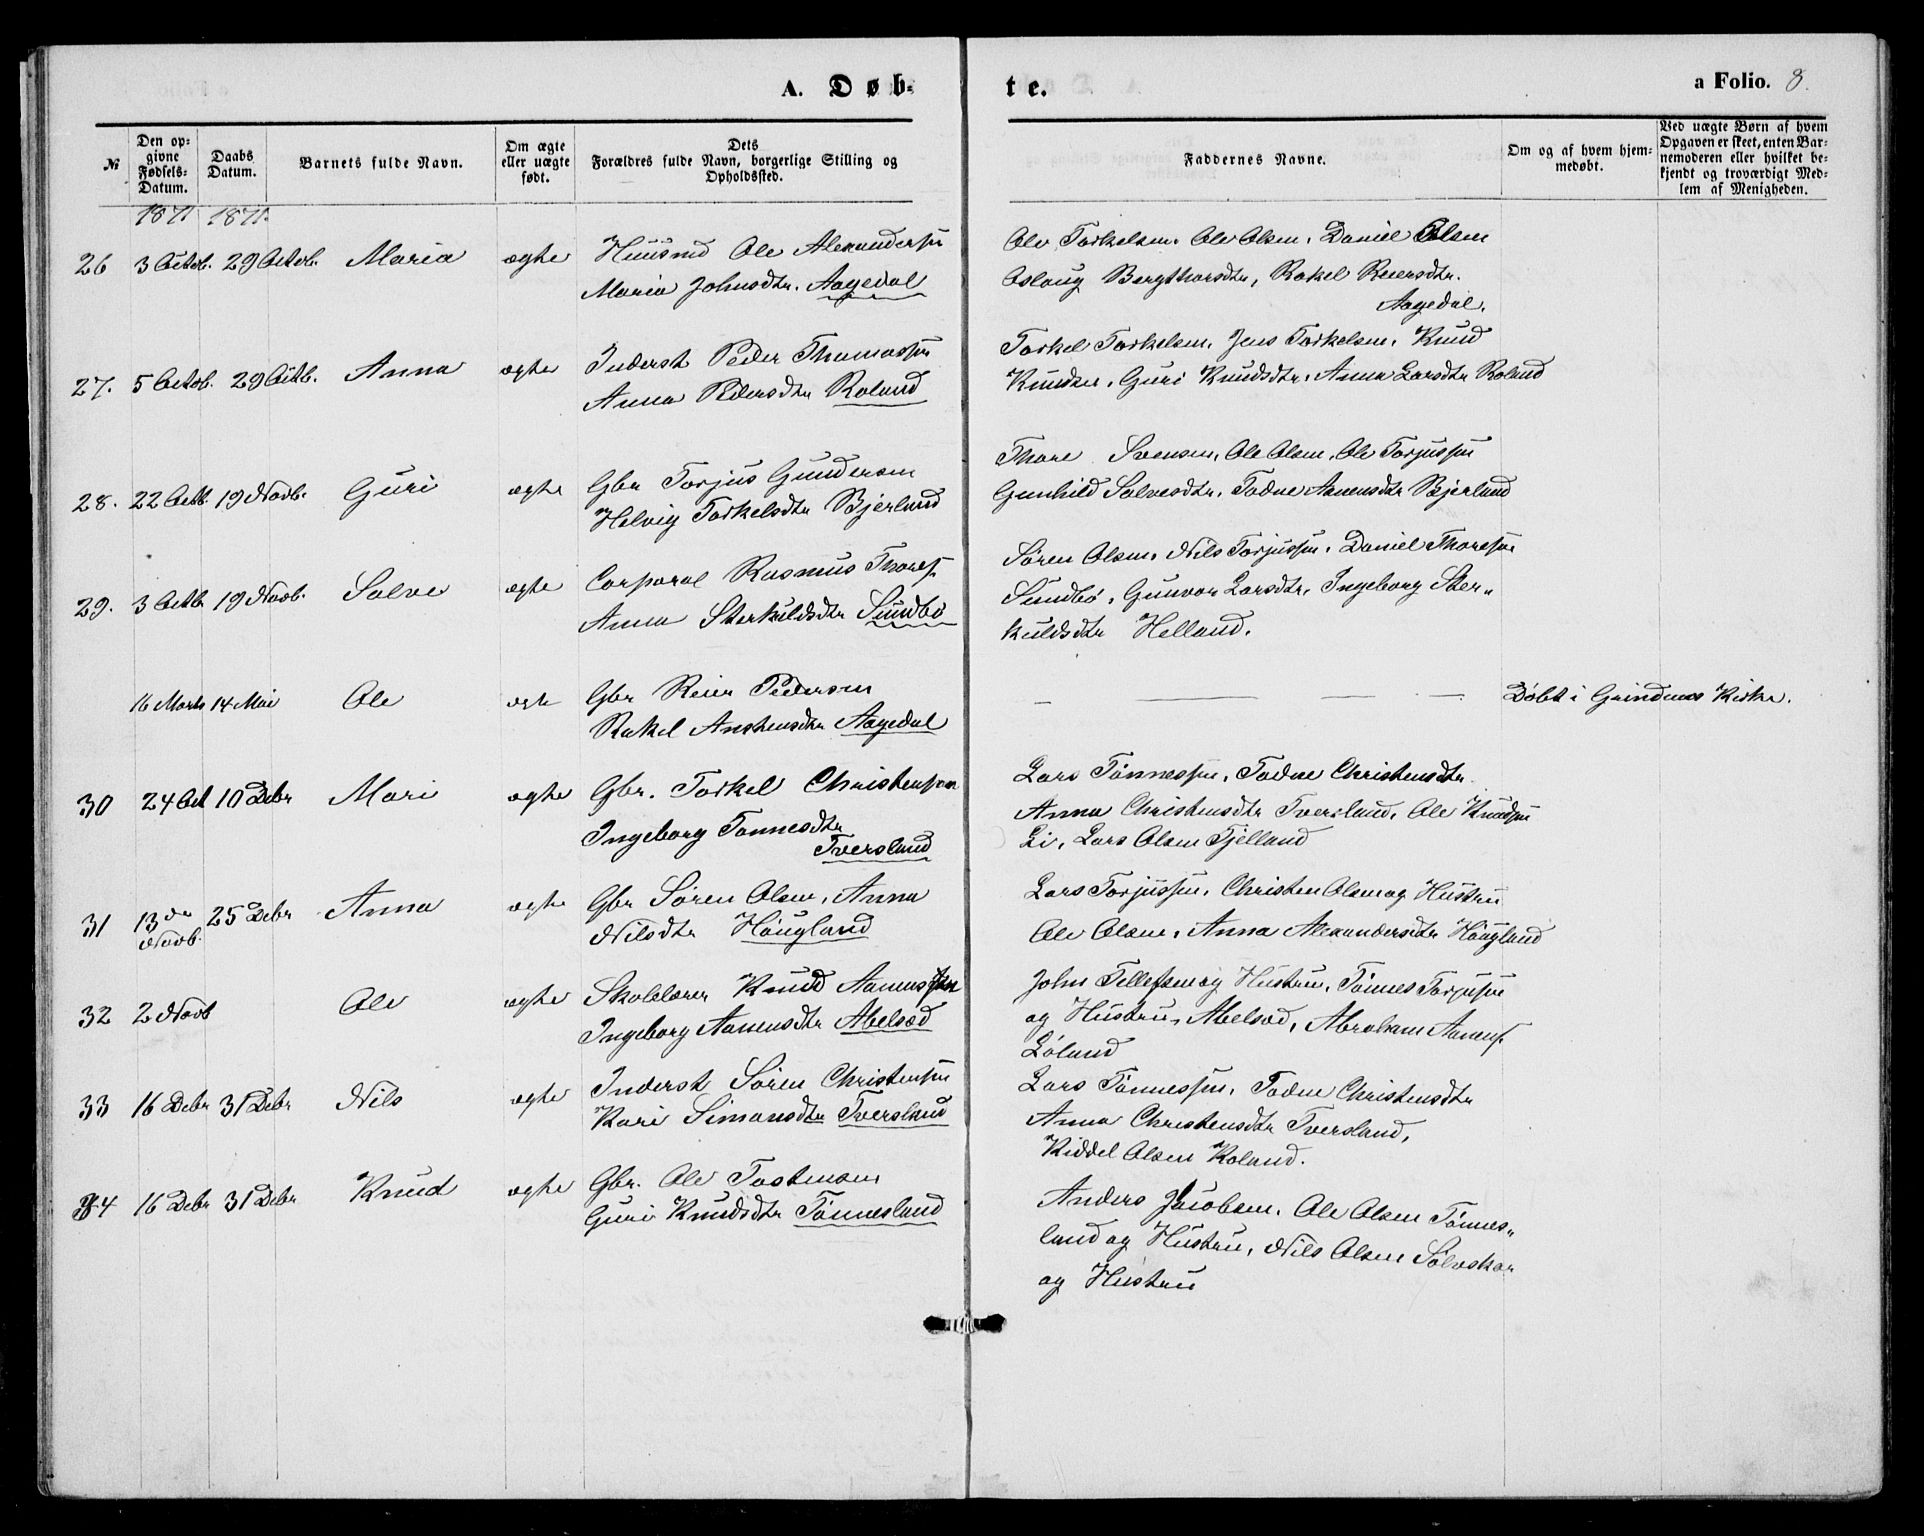 A. Døb-
te.
a Folio. 8.
№
Den op-
givne
Fødsels-
Datum.
Daabs
Datum.
Barnets fulde Navn.
Om ægte
eller uægte
født.
Dets
Forældres fulde Navn, borgerlige Stilling og
Opholdssted.
Faddernes Navne.
Om og af hvem hjem-
medøbt.
Ved uægte Børn af hvem
Opgaven er skeet, enten Bar-
nemoderen eller hvilket be-
kjendt og troværdigt Med-
lem af Menigheden.
1871 1871.
26 3 Octob. 29 Octob. Maria ægte Huusmd Ole Alexandersen
Maria Johnsdtr. Aagedal
Ole Torkelsen. Ole Olsen. Daniel Olsen
Aslaug Bergthorsdtr, Rakel Reiersdtr.
Aagedal.
27. 5 Octob. 29 Octb. Anna ægte Inderst Peder Thomassen
Anna Pedersdtr Roland
Torkel Torkelsen. Jens Torkelsen. Knud
Knudsen. Guri Knudsdtr. Anna Larsdtr Roland
28. 22 Octb. 19 Novb. Guri ægte Gbr Torjus Gundersen
Helvig Torkelsdtr Bjerland
Thore Svensen, Ole Olsen, Ole Torjussen
Gunhild Salvesdtr. Todne Aanensdtr Bjerland
29. 3 Octb. 19 Novb. Salve ægte Corporal Rasmus Thores.
Anna Sterkuldsdtr Sundbø
Søren Olsen. Nils Torjussen. Daniel Thoresen
Sundbø. Gunvor Larsdtr, Ingeborg Ster-
kuldsdtr Helland.
16 Marts 14 Mai Ole ægte Gbr Reier Pedersen
Rakel Anstensdtr Aagedal
Døbt i Grindens Kirke.
30 24 Oct 10 Debr Mari ægte Gbr. Torkel Christensen
Ingeborg Tønnesdtr
Tversland
Lars Tønnessen, Todne Christensdtr
Anna Christensdtr Tversland, Ole Knudsen
Li, Lars Olsen Fjelland
31 13de Novb. 25 Debr Anna ægte Gbr Søren Olsen, Anna
Nilsdtr Høugland
Lars Torjussen. Christen Olsen og Hustru
Ole Olsen. Anna Alexandersdtr Høugland
32 2 Novb Ole ægte Skolelærer Knud Aanensen
Ingeborg Aanensdtr Abelsæd
John Tellefsen og Hustru, Tønnes Torjusen
og Hustru, Abelsæd, Abraham Aanens.
Løland
33 16 Debr 31 Debr Nils ægte Inderst Søren Christensen
Kari Simonsdtr Tversland
Lars Tønnessen, Todne Christensdtr
Anna Christensdtr Tversland,
Kiddel Olsen Roland.
34 16 Debr 31 Debr Knud ægte Gbr. Ole Tostensen
Guri Knudsdtr Tønnesland
Anders Jacobsen. Ole Olsen Tønnes-
land og Hustru, Nils Olsen Sølvskar
og Hustru